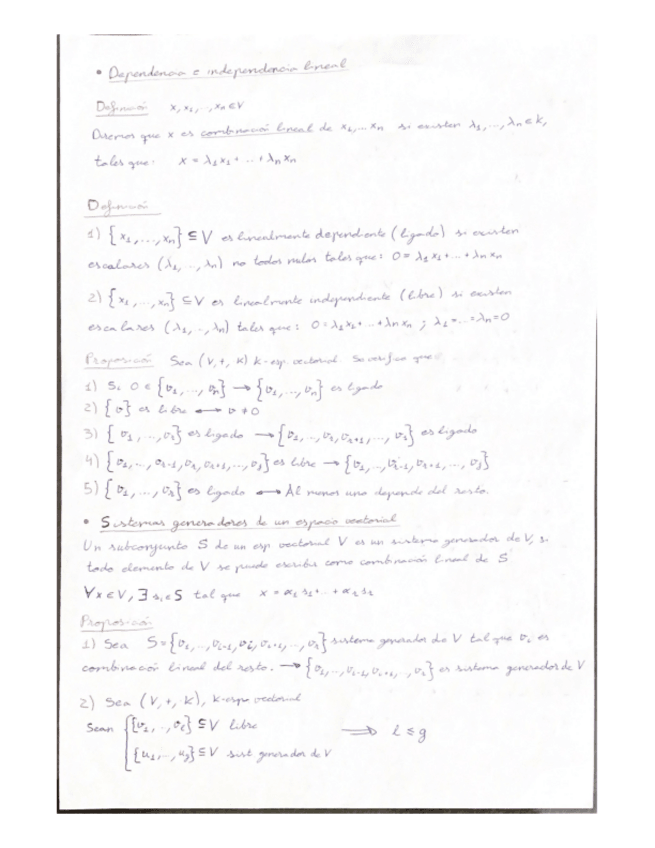 • Dependencia e independencia lineal
Definición x, x₁, ..., xₙ ∈ V
Diremos que x es combinación lineal de x₁, ... xₙ si existen λ₁, ..., λₙ ∈ K,
tales que: x = λ₁x₁ + ... + λₙxₙ
Definición
1) {x₁, ..., xₙ} ⊆ V es linealmente dependiente (ligado) si existen
escalares (λ₁, ..., λₙ) no todos nulos tales que: 0 = λ₁x₁ + ... + λₙxₙ
2) {x₁, ..., xₙ} ⊆ V es linealmente independiente (libre) si existen
escalares (λ₁, .., λₙ) tales que: 0 = λ₁x₁ + ... + λₙxₙ ; λ₁ = ... = λₙ = 0
Proposición Sea (V, +, K) K-esp. vectorial. Se verifica que:
1) Si 0 ∈ {v₁, ..., vₙ} → {v₁, ..., vₙ} es ligado
2) {v} es libre ↔ v ≠ 0
3) {v₁, ..., vᵣ} es ligado → {v₁, ..., vᵣ, vᵣ₊₁, ..., vₛ} es ligado
4) {v₁, ..., vᵣ₋₁, vᵣ, vᵣ₊₁, ..., vⱼ} es libre → {v₁, ..., vᵣ₋₁, vᵣ₊₁, ..., vⱼ}
5) {v₁, ..., vᵣ} es ligado ↔ Al menos uno depende del resto.
• Sistemas generadores de un espacio vectorial
Un subconjunto S de un esp vectorial V es un sistema generador de V, si
todo elemento de V se puede escribir como combinación lineal de S
∀x ∈ V, ∃ sᵢ ∈ S tal que x = α₁s₁ + .. + αᵣsᵣ
Proposición
1) Sea S = {v₁, .., vᵢ₋₁, vᵢ, vᵢ₊₁, ..., vᵣ} sistema generador de V tal que vᵢ es
combinación lineal del resto. → {v₁, ..., vᵢ₋₁, vᵢ₊₁, .., vᵣ} es sistema generador de V
2) Sea (V, +, K), K-esp vectorial
Sean {v₁, .., vₗ} ⊆ V libre
{u₁, ..., u_g} ⊆ V sist generador de V ⟹ l ≤ g